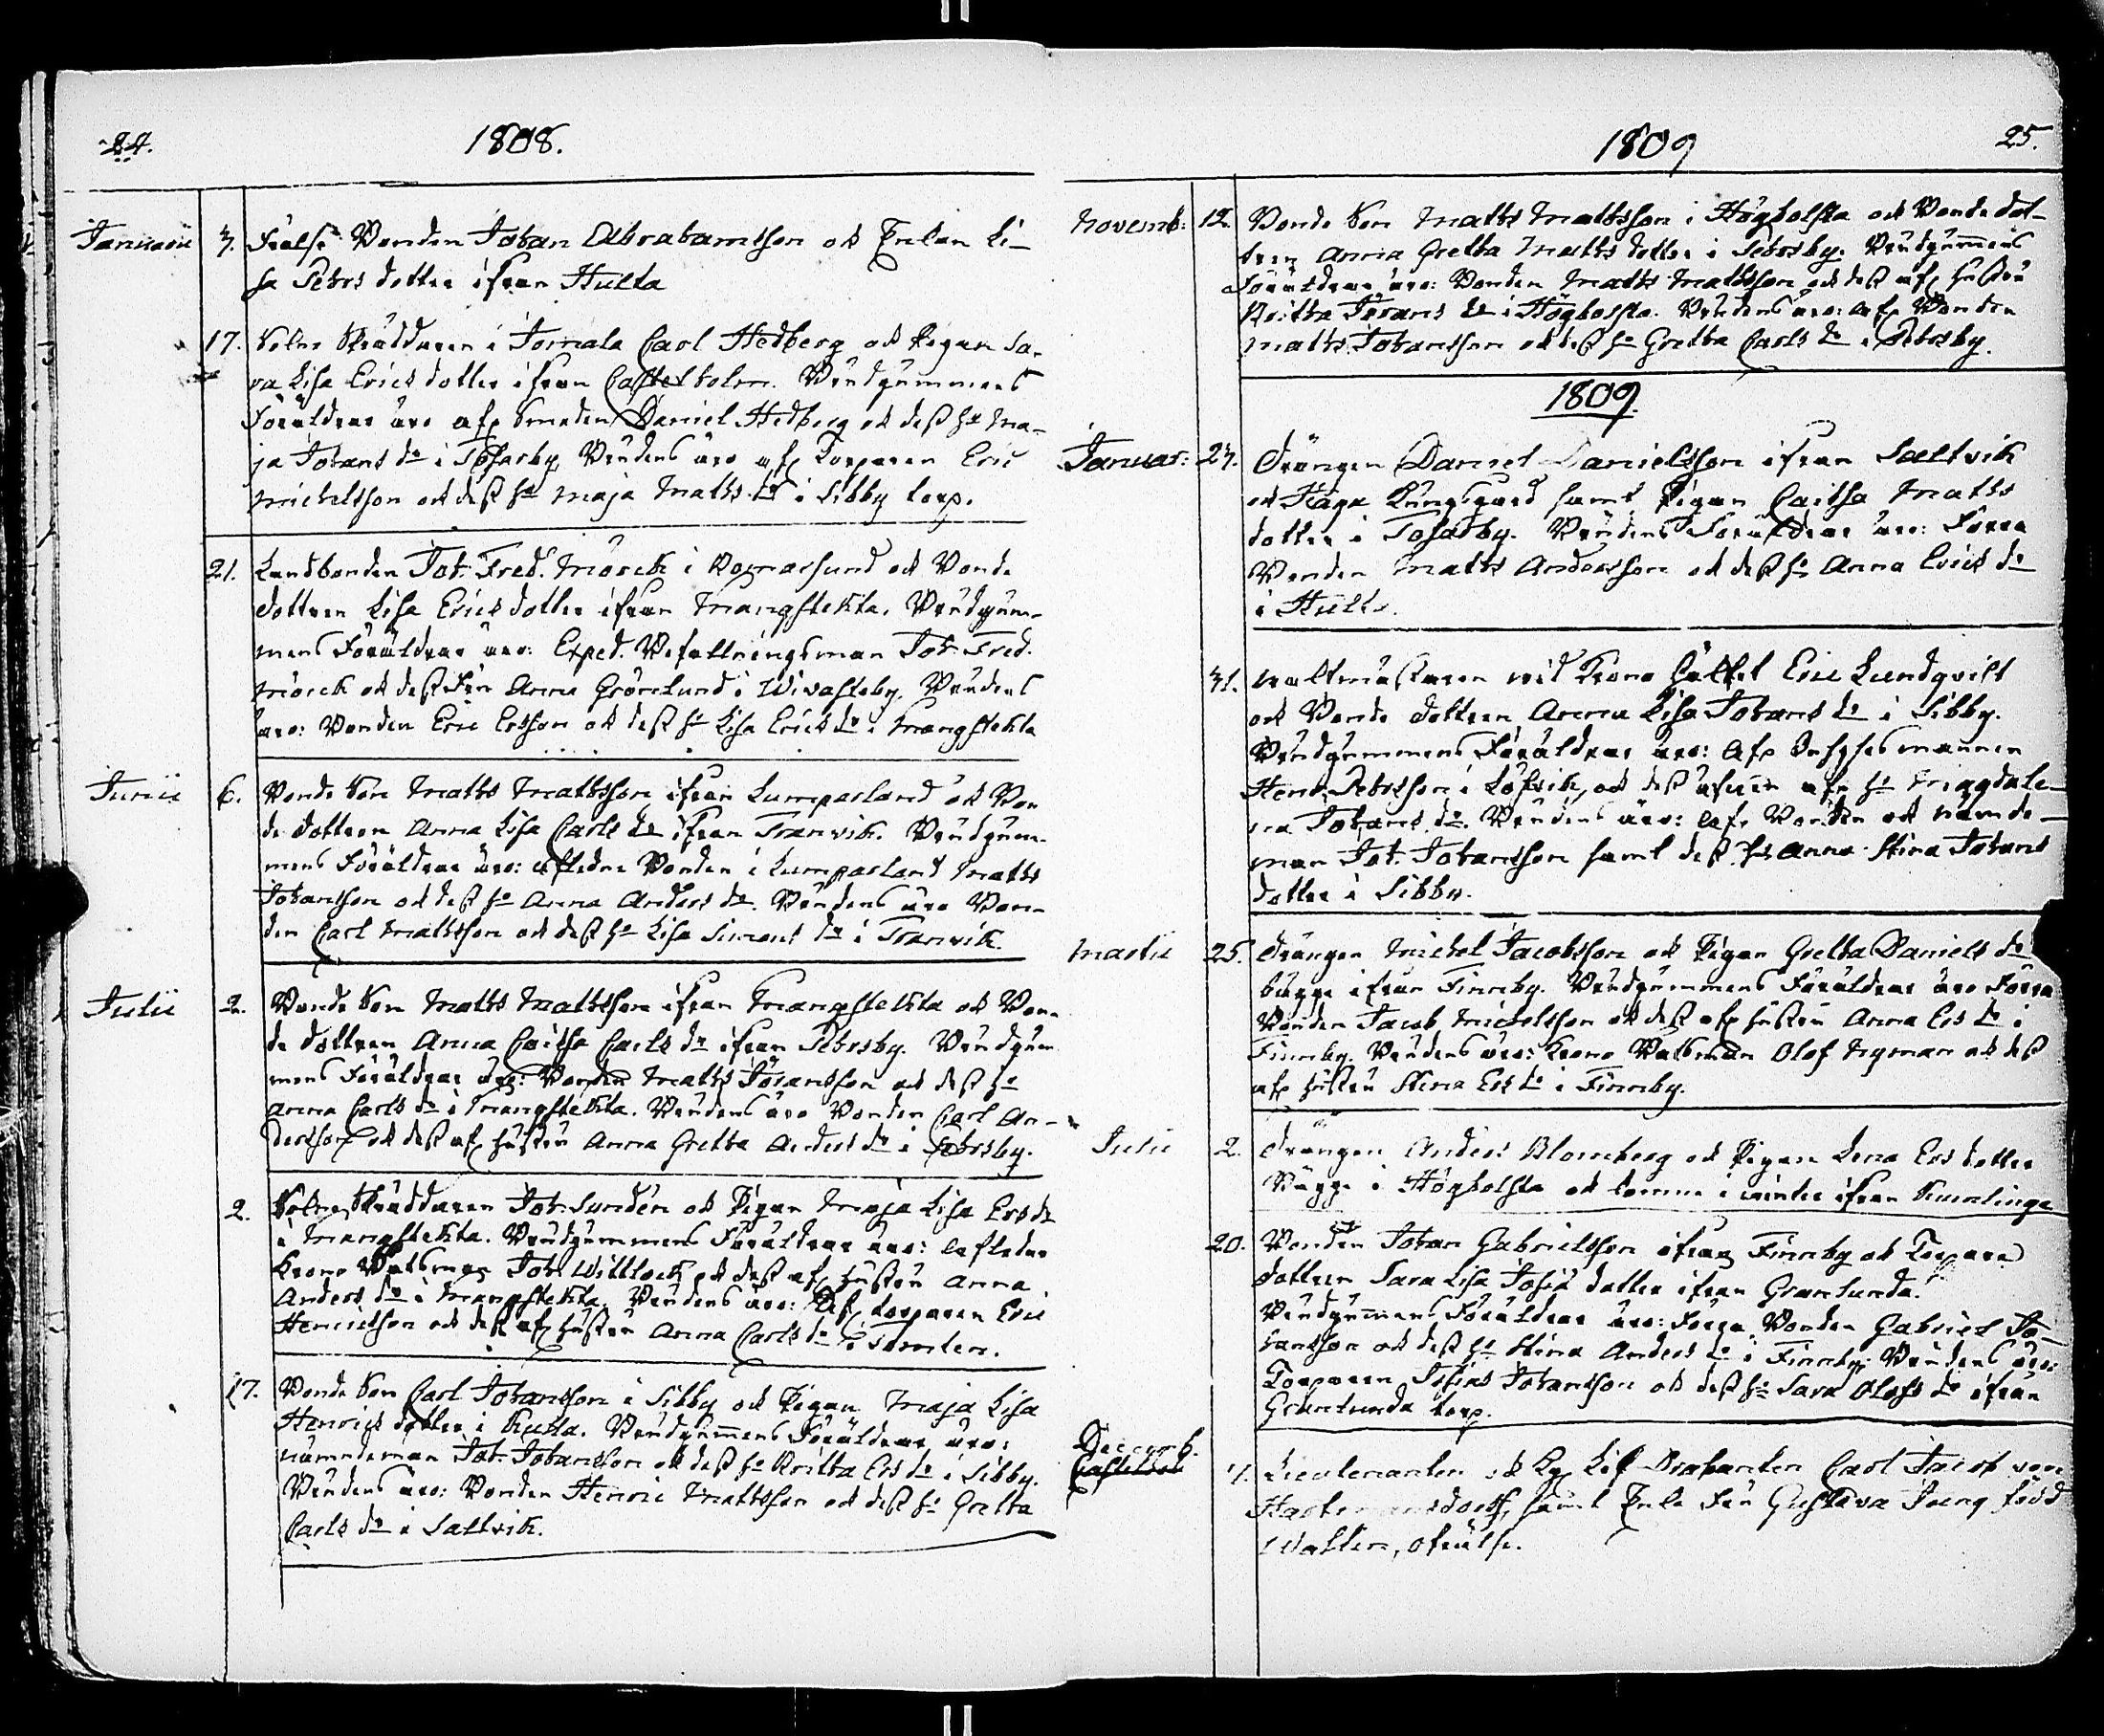 24.
1808.
Januarii 7. Frälse Bonden Johan Abrahamsson och Enkan Li-
sa Pehrs dotter ifrån Hulta
17. Sokne Skräddaren i Jomala Carl Hedberg och Pigan Sa-
ra Lisa Erics dotter ifrån Castelholm. Brudgummens
Föräldrar äro afl. Smeden Daniel Hedberg och dess h: Ma-
ja Johans dr i Tosarby, Brudens äro afl. Torparen Eric
Michelsson och dess h: Maja Matts dr i Sibby torp.
21. Landbonden Joh: Fred. Mörck i Bomarsund och Bonde
dottren Lisa Erics dotter ifrån Mångstekta. Brudgum-
mens Föräldrar äro: Exped. Befallningsman Joh: Fred.
Mörck och dess Fru Anna Grönlund i Wivasteby. Brudens
äro: Bonden Eric Ersson och dess h: Lisa Erics dr i Mångstekta
Junii 6. Bonde Son Matts Mattsson ifrån Lumparland och Bon
de dottren Anna Lisa Carls dr ifrån Tranvik. Brudgum-
mens Föräldrar äro: aflidne Bonden i Lumparland Matts
Johansson och dess h: Anna Anders dr. Brudens äro Bon-
den Carl Mattsson och dess h: Lisa Simons dr i Tranvik.
Julii 2. Bonde Son Matts Mattsson ifrån Mångstekta och Bon-
de dottren Anna Caisa Carls dr ifrån Pehrsby. Brudgum
mens Föräldrar äro: Bonden Matts Jöransson och dess h:
Anna Carls dr i Mångstekta. Brudens äro Bonden Carl An-
dersson och dess afl. hustru Anna Gretta Anders dr i Pehrsby.
2. Sokne Skräddaren Joh: Sundén och Pigan Maja Lisa Ers dr
i Mångstekta. Brudgummens Föräldrar äro: aflidne
Krono Båtsman Joh: Wittlock och dess afl. hustru Anna
Anders dr i Mångstekta. Brudens äro: Afl. torparen Eric
Henricsson och dess afl. hustru Anna Carls dr i Tomten.
17. Bonde Son Carl Johansson i Sibby och Pigan Maja Lisa
Henrics dotter i Kulla. Brudgummens Föräldrar äro:
nämndeman Joh: Johansson och dess h: Britta Ers dr i Sibby.
Brudens äro: Bonden Henric Mattsson och dess h: Gretta
Carls dr i Saltvik.
1809
25.
Novemb: 12. Bonde Son Matts Mattsson i Högbolsta och Bonde dot-
tren Anna Gretta Matts dotter i Pehrsby. Brudgummens
Föräldrar äro: Bonden Matts Mattsson och dess afl. hustru
Britta Jörans dr i Högbolsta. Brudens äro: afl. Bonden
Matts Johansson och dess h: Gretta Carls dr i Pehrsby.
1809.
Januar: 24. Drängen Daniel Danielsson ifrån Saltvik
och Haga Kungsgård samt Pigan Caitsa Matts
dotter i Tosarby. Brudens Föräldrar äro: Förra
Bonden Matts Andersson och dess h: Anna Erics dr
i Hulta.
31. waltmästaren vid Krono häktet Eric Lundqvist
och Bonde dottren Anna Lisa Johans dr i Sibby.
Brudgummens Föräldrar äro: Afl. Inhyses mannen
Henr. Pehrsson i Löfvik, och dess afl. h: Magdale-
na Johans dr. Brudens äro: Afl. Bonden och nämnde-
man Joh: Johansson samt dess h: Anna Stina Johans
dotter i Sibby.
Martii 25. Drängen Michel Jacobsson och Pigan Gretta Daniels dr
bägge ifrån Finnby. Brudgummens Föräldrar äro Förra
Bonden Jacob Michelsson och dess afl. hustru Anna Ers dr i
Finnby. Brudens äro: Krono Båtsman Olof Nyman och dess
afl. hustru Stina Ers dr i Finnby.
Julii 2. Drängen Anders Blomberg och Pigan Lena Ers dotter
Bägge i Högbolsta och komne i winter ifrån Kumlinge
20. Bonden Johan Gabrielsson ifrån Finnby och Torpare
dottren Sara Lisa Josias dotter ifrån Granlunda.
Brudgummens Föräldrar äro: Förra Bonden Gabriel Jo-
hansson och dess h: Stina Anders dr i Finnby. Brudens äro:
Torparen Josias Johansson och dess h: Sara Olofs dr ifrån
Granlunda torp.
Decemb.
7. Lieutenanten och Kgl. Lif Drabanten Carl Jacob von
Hartmansdorff, samt Enke Fru Gustava Jung född
Wallien, ofrälse.